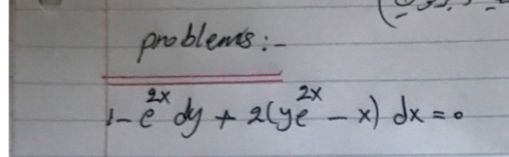 problems:-
1- e^2x dy + 2(ye^2x - x) dx = 0